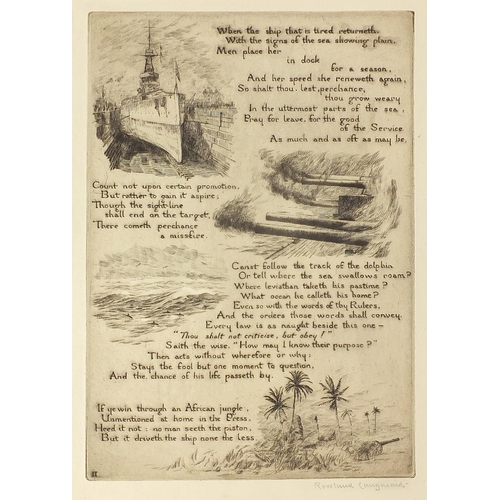 When the ship that is tired returneth,
With the signs of the sea showing plain,
Men place her
in dock
for a season,
And her speed she reneweth again,
So shalt thou, lest, perchance,
thou grow weary
In the uttermost parts of the sea,
Pray for leave, for the good
of the Service,
As much and as oft as may be.
Count not upon certain promotion,
But rather to gain it aspire;
Though the sight-line
shall end on the target,
There cometh perchance
a missfire.
Canst follow the track of the dolphin
Or tell where the sea swallows roam?
Where leviathan taketh his pastime?
What ocean he calleth his home?
Even so with the words of thy Rulers,
And the orders those words shall convey.
Every law is as naught beside this one -
"Thou shalt not criticise, but obey!"
Saith the wise, "How may I know their purpose?"
Then acts without wherefore or why:
Stays the fool but one moment to question,
And the chance of his life passeth by.
If ye win through an African jungle,
Unmentioned at home in the Press,
Heed it not: no man seeth the piston,
But it driveth the ship none the less.
II
Rowland Langmaid